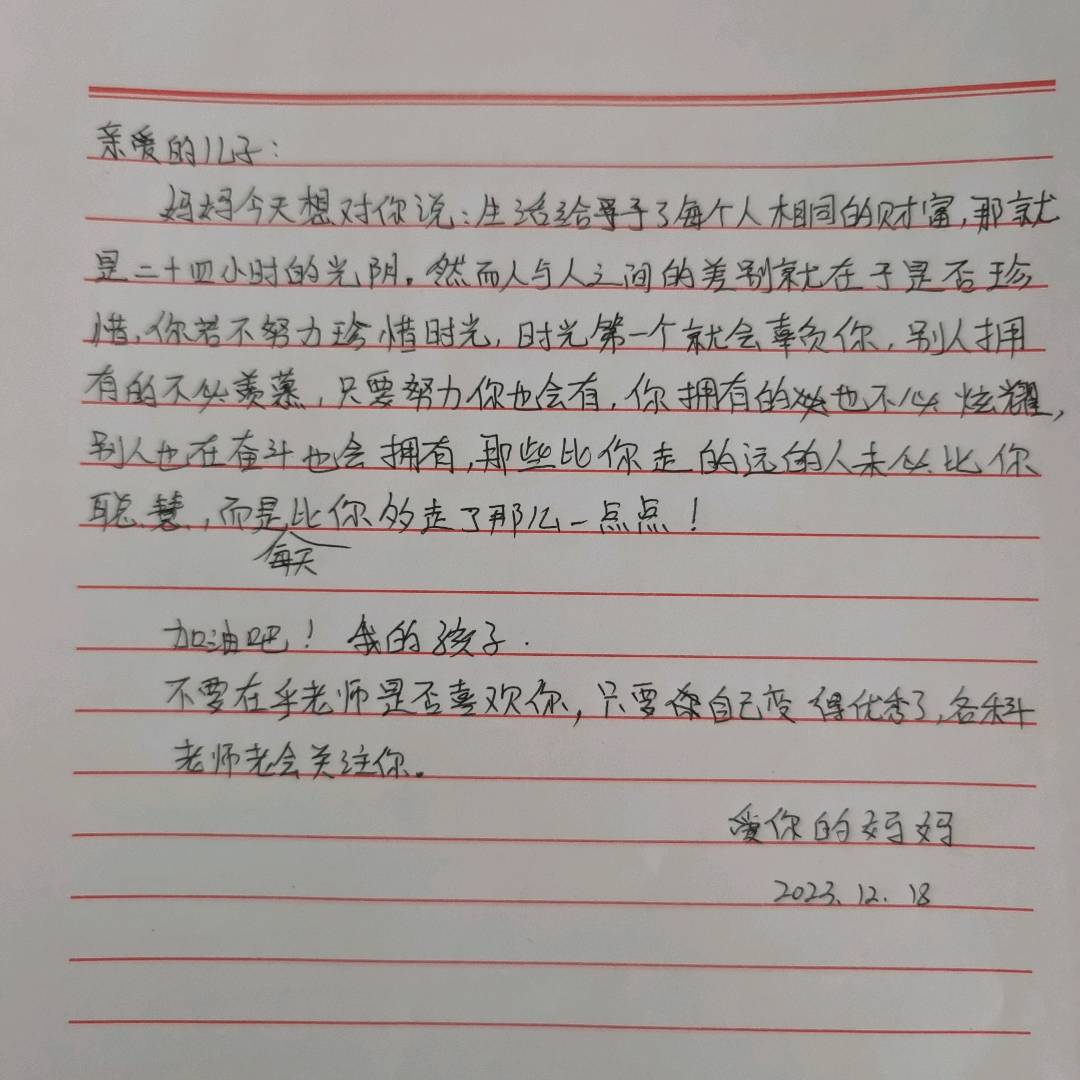 亲爱的儿子:
妈妈今天想对你说:生活给予了每个人相同的财富,那就
是二十四小时的光阴。然而人与人之间的差别就在于是否珍
惜,你若不努力珍惜时光,时光第一个就会辜负你,别人拥
有的不必羡慕,只要努力你也会有,你拥有的也不必炫耀,
别人也在奋斗也会拥有,那些比你走的远的人未必比你
聪慧,而是比你多走了那么一点点!
每天
加油吧!我的孩子.
不要在乎老师是否喜欢你,只要你自己变得优秀了,各科
老师老会关注你。
爱你的妈妈
2023.12.18